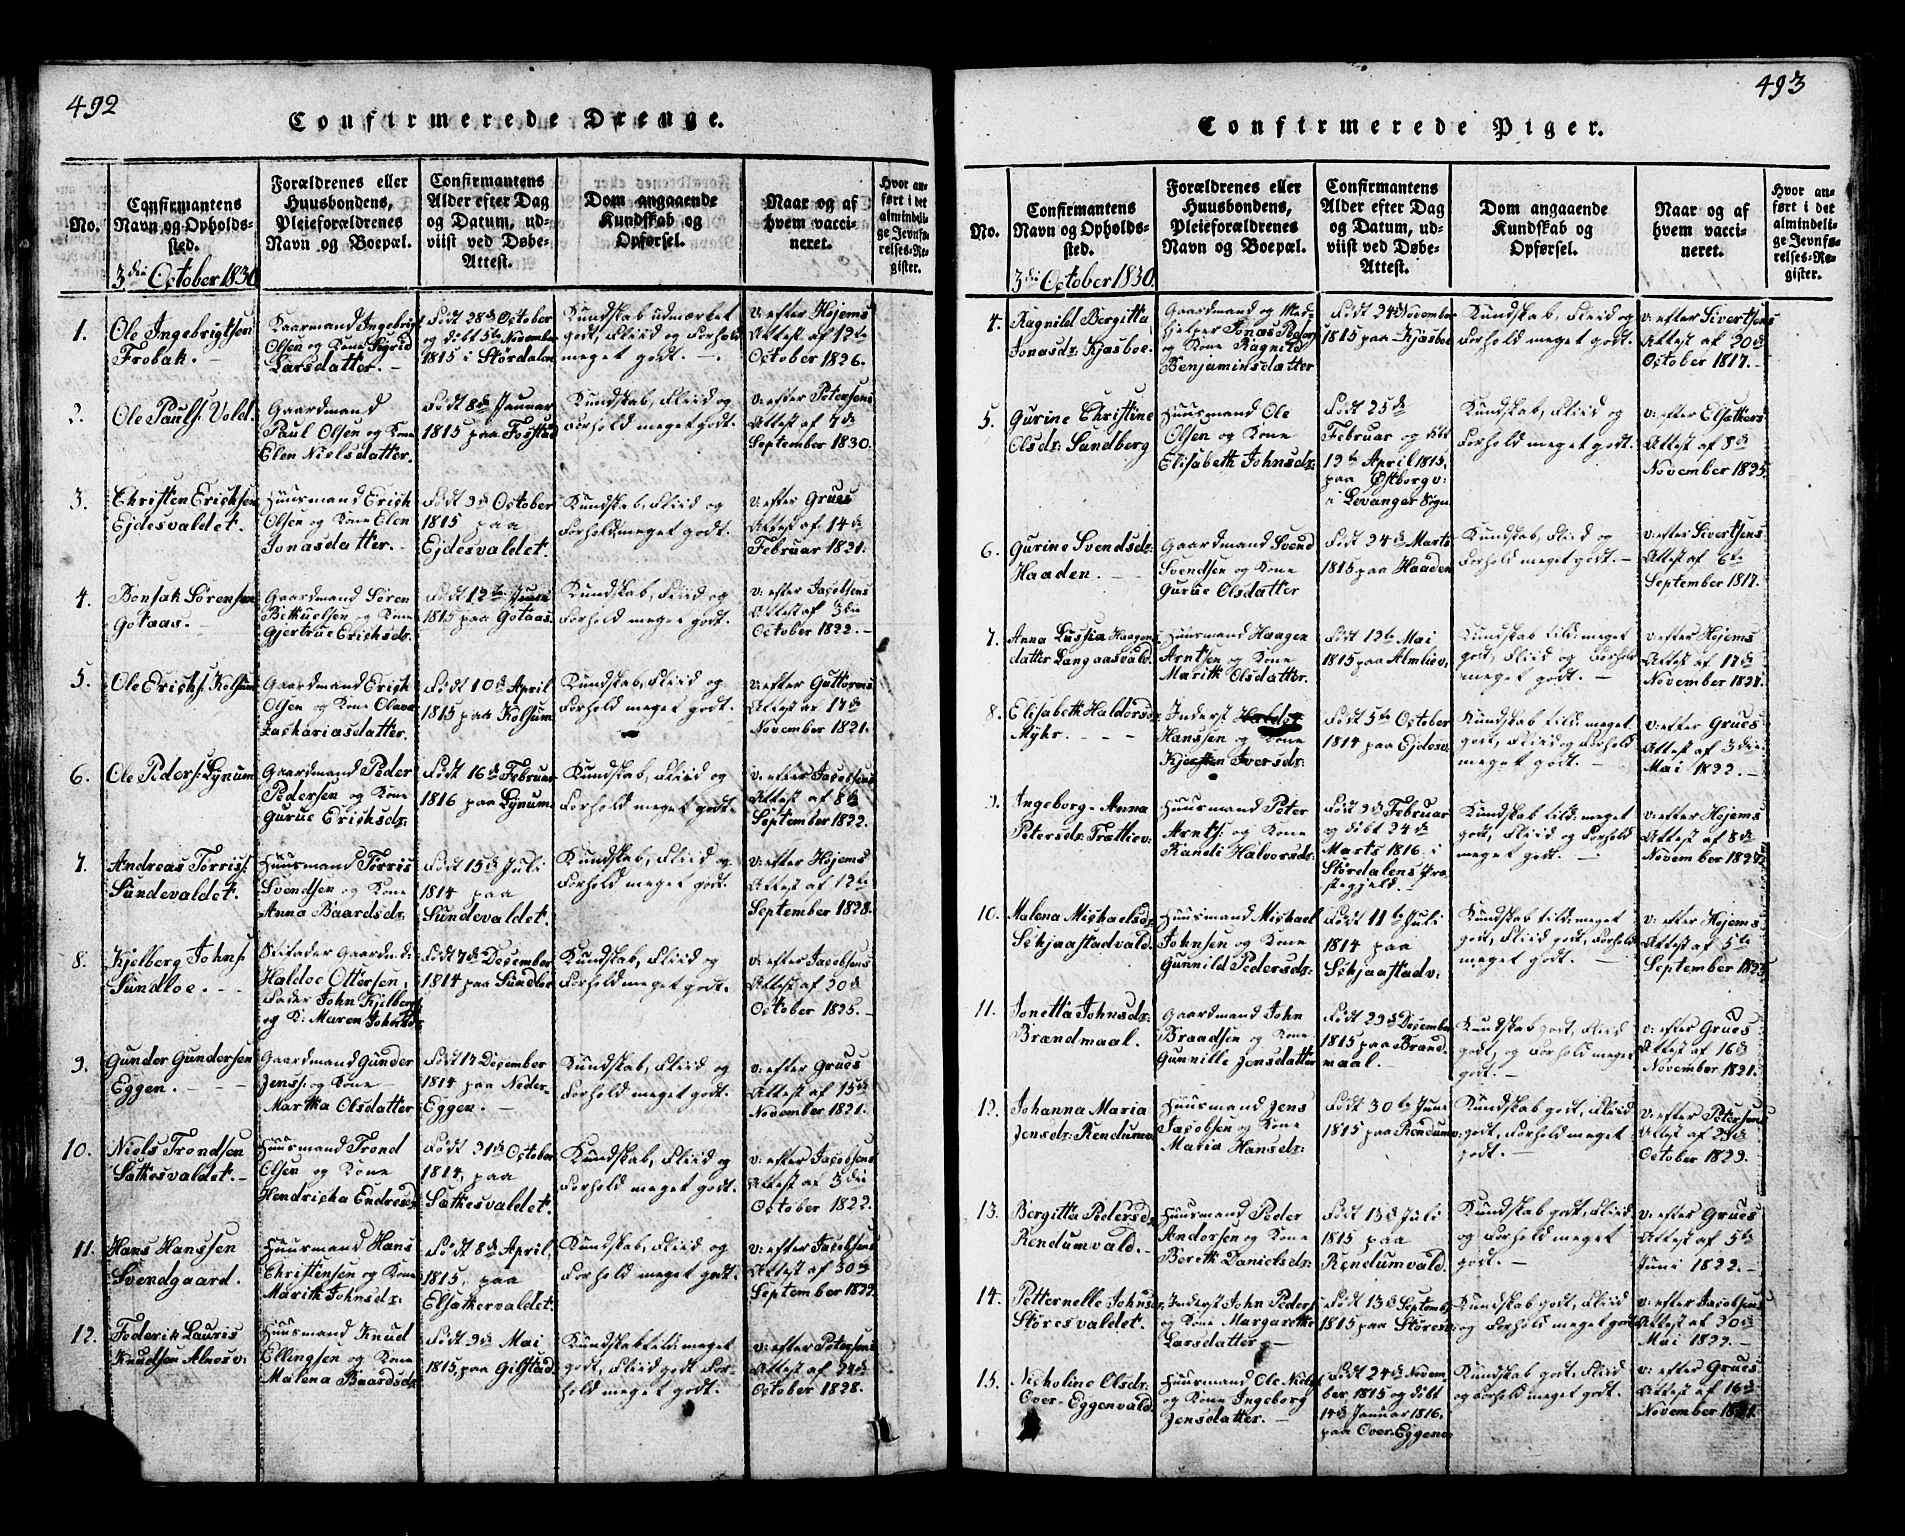 492
Confirmerede Drenge.
No.
Confirmantens
Navn og Opholds-
sted.
3die October 1830
Forældrenes eller
Huusbondens,
Pleieforældrenes
Navn og Boepæl.
Confirmantens
Alder efter Dag
og Datum, ud-
viist ved Døbe-
Attest.
Dom angaaende
Kundskab og
Opførsel.
Naar og af
hvem vacci-
neret.
Hvor an-
ført i det
almindeli-
ge Jevnfø-
relses-Re-
gister.
1.
Ole Ingebrigtsen
Frobak.
Gaarmand Ingebrigt
Olsen og Kone Sigrid
Larsdatter. -
Født 28de October
og døbt 5te November
1815 i Størdalen
Kundskab udmærket
godt, Fliid og Forhold
meget godt. -
v: efter Højems
Attest af 12te
October 1826.
2.
Ole Pauls: Vold.
Gaardmand
Paul Olsen og Kone
Elen Nielsdatter.
Født 8de Januar
1815 paa Forstad
Kundskab, Fliid og
Forhold meget godt.
v: efter Petersens
Attest af 7de
September 1830.
3.
Christen Erichsen
Ejdesvaldet.
Huusmand Erich
Olsen og Kone Elen
Jonasdatter.
Født 9de October
1815 paa
Ejdesvaldet.
Kundskab, Fliid og
Forhold meget godt.
v: efter Grues
Attest af 14de
Februar 1821.
4.
Bonsak Sørensen
Gotaas.
Gaardmand Søren
Bethuelsen og Kone
Gjertrue Erichsdr.
Født 12te Juni
1815 paa Gotaas.
Kundskab, Fliid og
Forhold meget godt.
v: efter Jacobsens
Attest af 3die
October 1822. -
5.
Ole Erichs: Kolsum
Gaardmand Erich
Olsen og Kone Olava
Zachariasdatter.
Født 10de April
1815 paa Kolsum.
Kundskab, Fliid og
Forhold meget godt.
v: efter Guttorms
Attest af 17de
November 1821.
6.
Ole Peders: Lynum
Gaardmand Peder
Pedersen og Kone
Gurue Erichsdr.
Født 16de Februar
1816 paa Lynum.
Kundskab, Fliid og
Forhold meget godt.
v: efter Jacobsens
Attest af 8de
September 1822.
7.
Andreas Torris:
Sundevaldet.
Huusmand Torris
Svendsen og Kone
Anna Baardsdr.
Født 15de Juli
1814 paa
Sundevaldet.
Kundskab, Fliid og
Forhold meget godt.
v: efter Højems
Attest af 12te
September 1828.
8.
Kjelberg Johns:
Sundloe. -
Stifader Gaardmd:
Haldoe Ottersen,
Fader John Kjelberg
og K: Maren Johnsdr
Født 7de December
1814 paa Sundloe
Kundskab, Fliid og
Forhold meget godt.
v: efter Jacobsens
Attest af 30de
October 1825. -
9.
Gunder Gundersen
Eggen. -
Gaardmand Gunder
Jens: og Kone
Martha Olsdatter
Født 17 December
1814 paa Neder-
Eggen. -
Kundskab, Fliid og
Forhold meget godt.
v: efter Grues
Attest af 15de
November 1821.
10.
Niels Trondsen
Sakesvaldet. -
Huusmand Trond
Olsen og Kone
Hendricha Endresdr
Født 31de October
1814, paa
Sakesvaldet.
Kundskab, Fliid og
Forhold meget godt.
v: efter Jacobsens
Attest af 3die
October 1822.
11.
Hans Hanssen
Svendgaard.
Huusmand Hans
Christensen og Kone
Marith Johnsdr:
Født 8de April
1815, paa
Elsatkervaldet.
Kundskab, Fliid og
Forhold meget godt.
v: efter Jacobsens
Attest af 30de
September 1822
12.
Foderik Lauris
Knudsen Alnesv:
Huusmand Knud
Ellingsen og Kone
Malena Baardsdr
Født 9de Mai
1815, paa Gilstad
Kundskab tild: meget
godt, Fliid godt For-
hold meget godt.
v: efter Petersens
Attest af 24de
October 1828.
493
Confirmerede Piger.
No.
Confirmantens
Navn og Opholds-
sted.
3die October 1830.
Forældrenes eller
Huusbondens,
Pleieforældrenes
Navn og Boepæl.
Confirmantens
Alder efter Dag
og Datum, ud-
viist ved Døbe-
Attest.
Dom angaaende
Kundskab og
Opførsel.
Naar og af
hvem vacci-
neret.
Hvor an-
ført i det
almindeli-
ge Jevnfø-
relses-Re-
gister.
4.
Ragnild Bergitta
Jonasdr: Kjasboe.
Gaardmand og Med-
hjelper Jonas
og Kone Ragnild
Benjaminsdatter
Født 24de November
1815 paa Kjasboe
Kundskab, Fliid og
Forhold meget godt.
v: efter Sivertsens
Attest af 20de
October 1817.
5.
Gurine Christine
Olsdr: Sandberg
Huusmand Ole
Olsen og Kone
Elisabeth Johnsdr:
Født 25de
Februar og døbt
12te April 1815,
paa Østborg v:
i Levanger Sogn
Kundskab, Fliid og
Forhold meget godt.
v: efter Elsatkers
Attest af 8de
November 1825.
6.
Gurine Svendsdr:
Haaden. -
Gaardmand Svend
Svendsen og Kone
Gurue Olsdatter
Født 24de Marts
1815 paa Haaden
Kundskab, Fliid og
Forhold meget godt. -
v: efter Sivertsens
Attest af 6te
September 1817.
7.
Anna Lussia Haagens
datter Langaasvald.
Huusmand Haagen
Arntsen og Kone
Marith Olsdatter.
Født 12te Mai
1815 paa Almliev:
Kundskab tild: meget
godt, Fliid og Forhold
meget godt. -
v: efter Højems
Attest af 17de
November 1828.
8.
Elisabeth Haldorsdr:
Mykr. -
Inderst Haldor
Hanssen og Kone
Kjersten Iversdr:
Født 5te October
1814 paa Ejdesv:
Kundskab tild: meget
godt, Fliid og Forhold
meget godt. -
v: efter Grues
Attest af 3die
Mai 1822. -
9.
Ingeborg-Anna
Petersdr: Trætliev:
Huusmand Peter
Arnts: og Kone
Randi Halvorsdr:
Født 9de Februar
og døbt 24de
Marts 1816. i
Størdalens Præ-
stegjeld. -
Kundskab tild: meget
godt, Fliid og Forhold
meget godt. -
v: efter Højems
Attest af 8de
November 1827.
10.
Malena Michaelsdr:
Schjaastadvald.
Huusmand Michael
Johnsen og Kone
Gunnild Pedersdr:
Født 11te Juli
1814 paa
Schjaastadv:
Kundskab tild: meget
godt, Fliid godt, Forhold
meget godt. -
v: efter Højems
Attest af 5te
September 1825
11.
Jonetta Johnsdr:
Brandmaal.
Gaardmand John
Braadsen og Kone
Gunnille Jensdatter
Født 29de December
1815 paa Brand-
maal. -
Kundskab godt, Fliid
godt, og Forhold meget
godt. -
v: efter Grues
Attest af 16de
November 1821.
12.
Johanna Maria
Jensdr: Rendumv:
Huusmand Jens
Jacobsen og Kone
Maria Hansdr:
Født 30te Juni
1815 paa Rendumv:
Kundskab godt, Fliid
godt, Forhold meget
godt. -
v: efter Petersens
Attest af 29de
October 1829.
13.
Bergitta Pedersdr:
Rendumvald. -
Huusmand Peder
Andorsen og Kone
Bereth Danielsdr:
Født 13de Juli
1815 paa
Rendumvald.
Kundskab godt, Fliid
og Forhold meget
godt. -
v: efter Grues
Attest af 5te
Juni 1822. -
14.
Petternelle Johnsdr:
Størесvaldet.
Inderst John Peders:
og Kone Margarethe
Larsdatter. -
Født 13de Septembr
1815 paa Størеsv:
Kundskab godt, Fliid
og Forhold meget godt
v: efter Jacobsens
Attest af 20de
Mai 1822. -
15.
Nicholine Olsdr:
Over-Eggenvald.
Huusmand Ole Niels:
og Kone Ingeborg
Jensdatter. -
Født 24de Novem-
ber 1815 og døbt
14de Januar 1816.
paa Over-Eggenv:
Kundskab godt, Fliid
og Forhold meget godt.
v: efter Grues
Attest af 16de
November 1821.